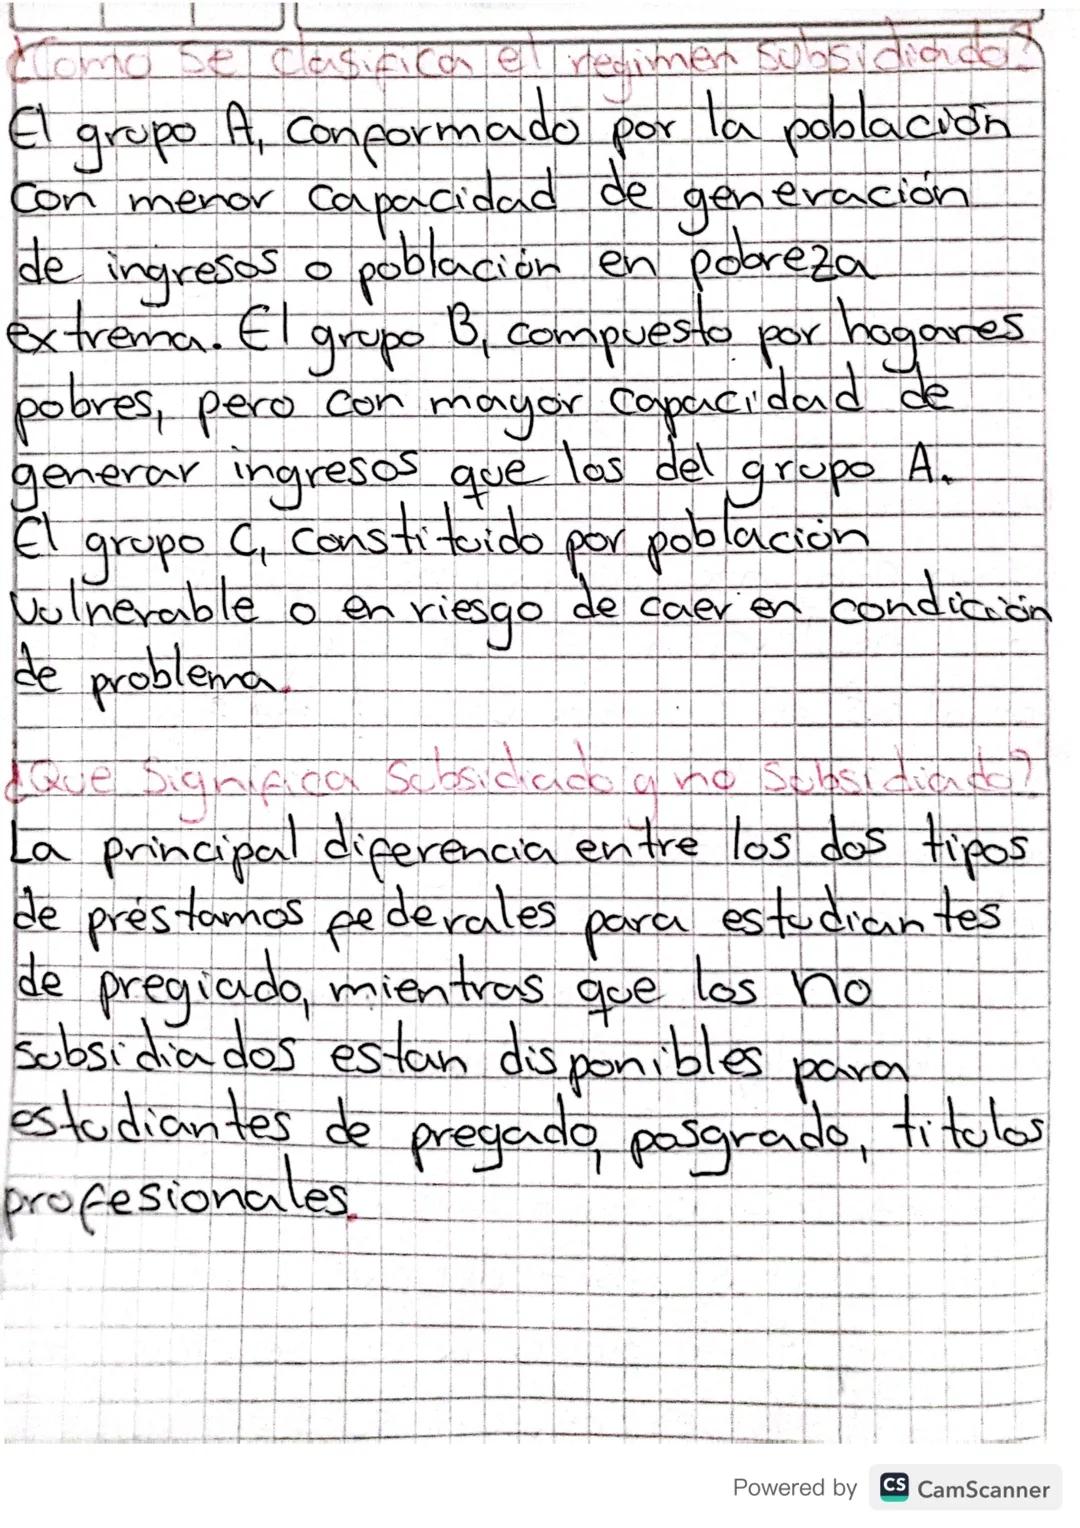 ¿Como se clasifica el regimen subsidiado?
El grupo A, conformado por la población
con menor capacidad de generación
de ingresos o población en pobreza
extrema. El grupo B, compuesto por hogares
pobres, pero con mayor capacidad de
generar ingresos que los del grupo A.
El grupo C, constituido por población
vulnerable o en riesgo de caer en condicición
de problema.
¿Que significa subsidiado y no subsidiado?
La principal diferencia entre los dos tipos
de préstamos federales para estudiantes
de pregiado, mientras que los no
subsidiados estan disponibles para
estudiantes de pregado, posgrado, titulos
profesionales.
Powered by CS CamScanner